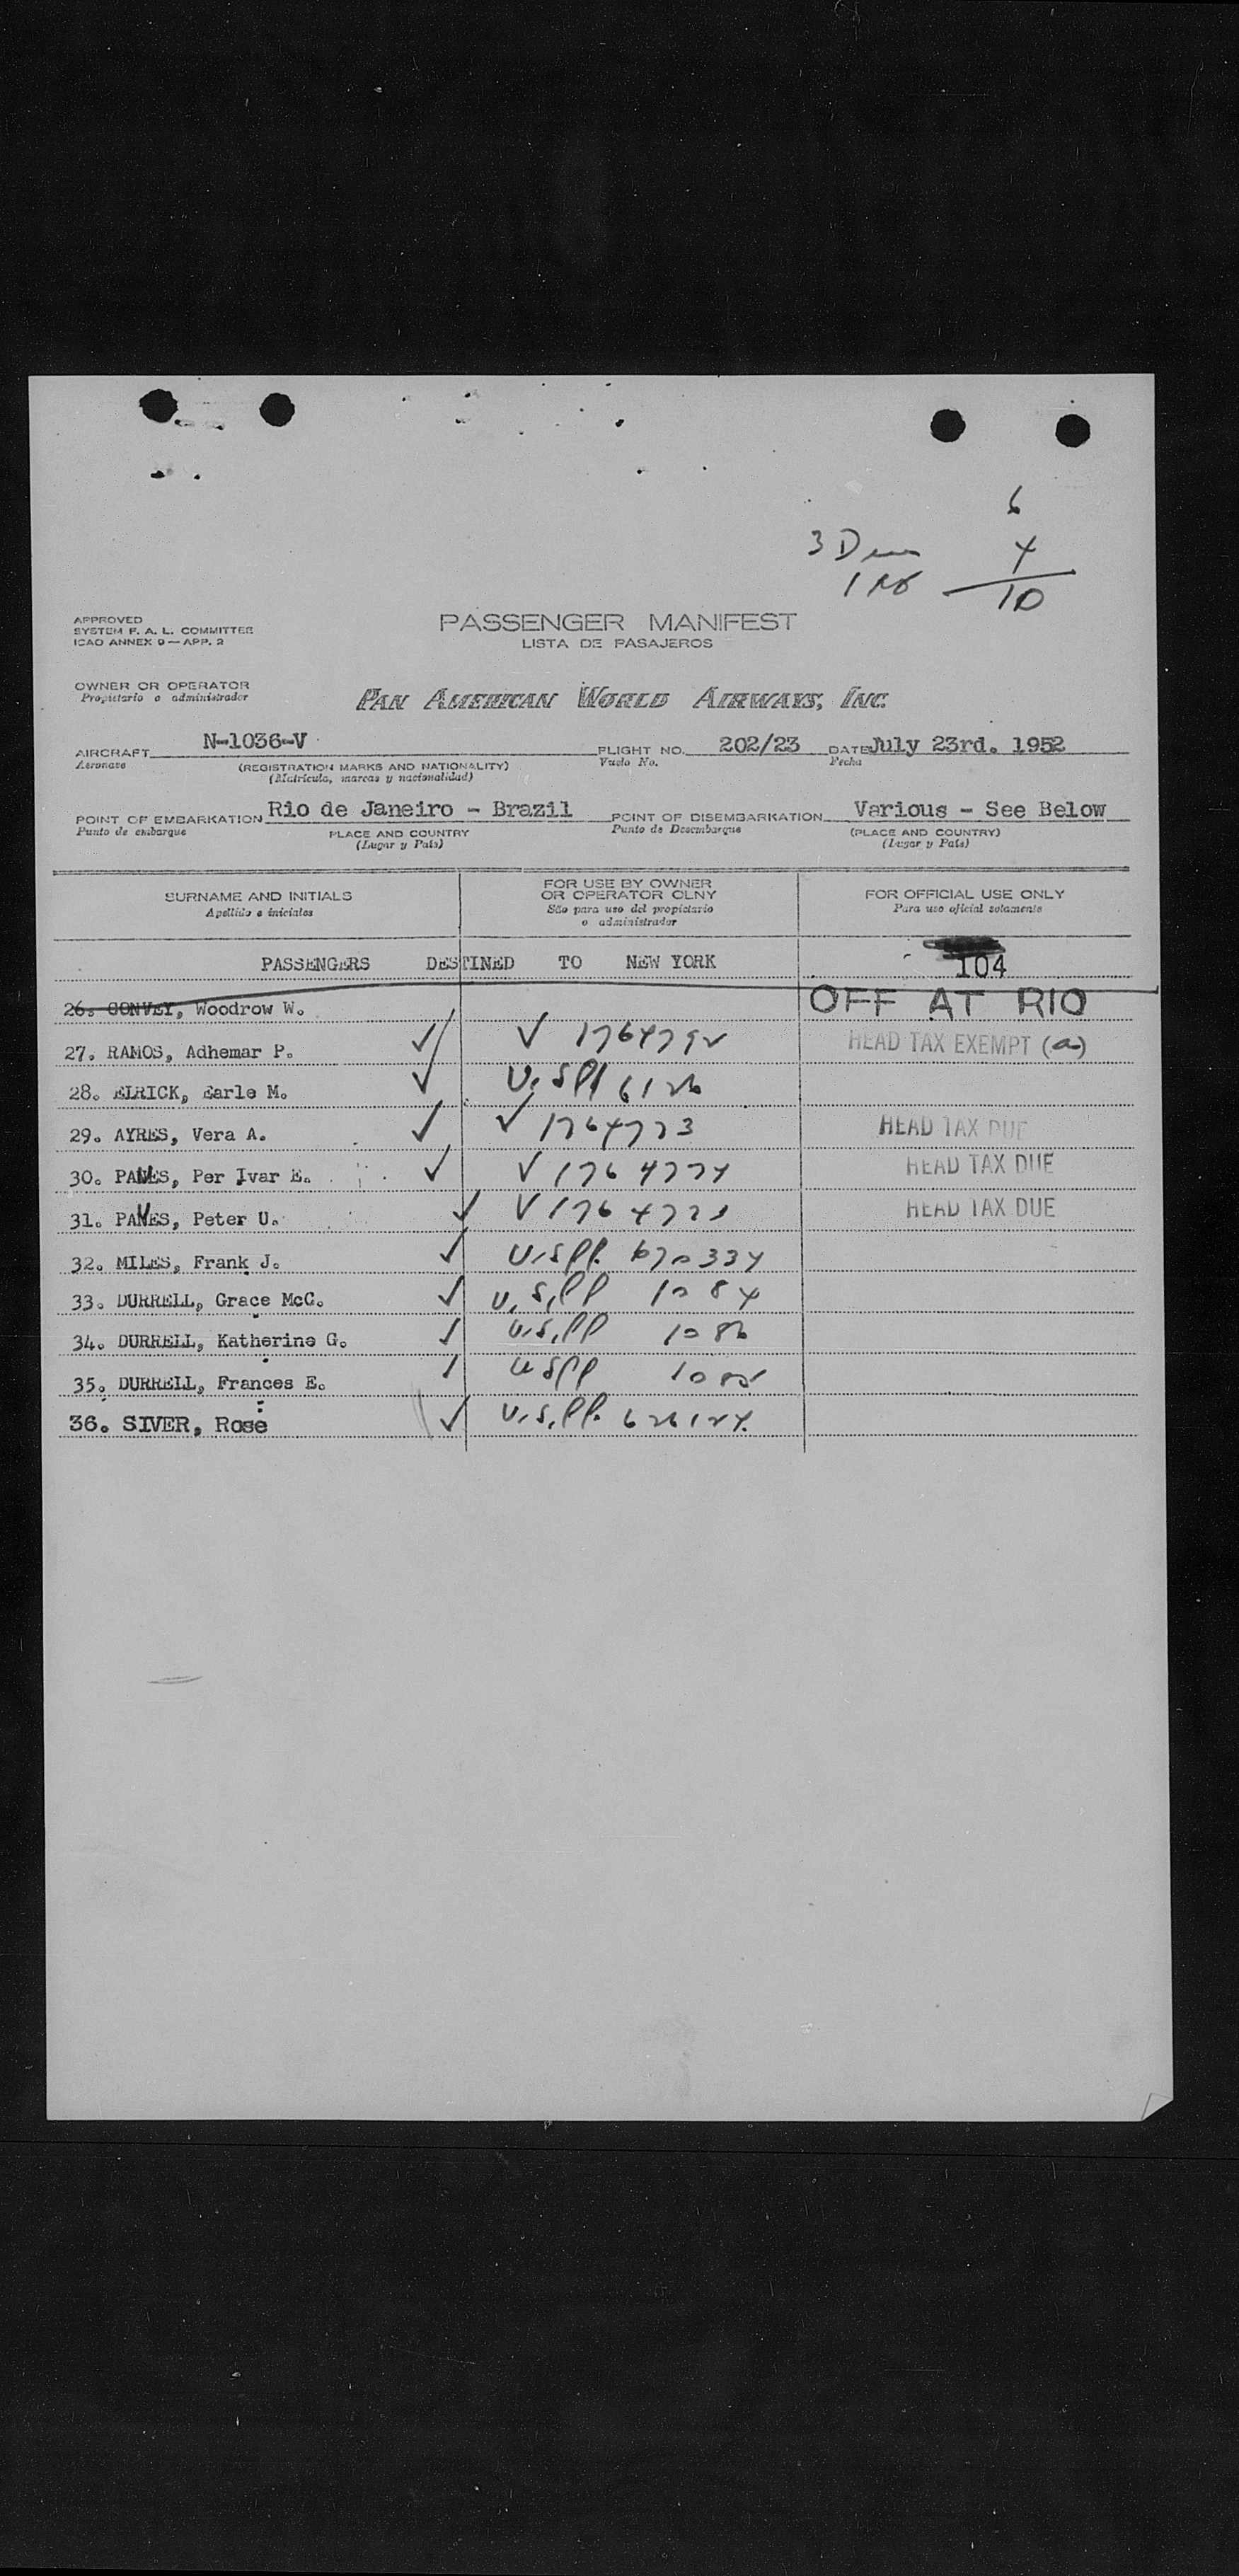 6
3 D
4
1
10
APPROVED
SYSTEM F. A. L. COMMITTEE
ICAO ANNEX 9 — APP. 2
PASSENGER MANIFEST
LISTA DE PASAJEROS
OWNER OR OPERATOR
Propietario o administrador
PAN AMERICAN WORLD AIRWAYS, INC.
AIRCRAFT N-1036-V FLIGHT NO. 202/23 DATE July 23rd. 1952
Aeronave (REGISTRATION MARKS AND NATIONALITY) Vuelo No. Fecha
(Matrícula, marcas y nacionalidad)
POINT OF EMBARKATION Rio de Janeiro - Brazil POINT OF DISEMBARKATION Various - See Below
Punto de embarque PLACE AND COUNTRY Punto de Desembarque (PLACE AND COUNTRY)
(Lugar y País) (Lugar y País)
SURNAME AND INITIALS FOR USE BY OWNER OR OPERATOR OLNY FOR OFFICIAL USE ONLY
Apellido e iniciales São para uso del propietario o administrador Para uso oficial solamente
PASSENGERS DESTINED TO NEW YORK 104
26. CONVEY, Woodrow W. OFF AT RIO
27. RAMOS, Adhemar P. ✓ V 1764792 HEAD TAX EXEMPT (a)
28. ELRICK, Earle M. ✓ U.S.PP 6126
29. AYRES, Vera A. ✓ V 1764773 HEAD TAX DUE
30. PAVES, Per Ivar E. ✓ V 1764774 HEAD TAX DUE
31. PAVES, Peter U. ✓ V 176477 HEAD TAX DUE
32. MILES, Frank J. ✓ U.S.PP. 670334
33. DURRELL, Grace McC. ✓ U.S.PP 1084
34. DURRELL, Katherine G. ✓ U.S.PP 1086
35. DURRELL, Frances E. ✓ U.S.PP 1085
36. SIVER, Rose ✓ U.S.PP. 626124.